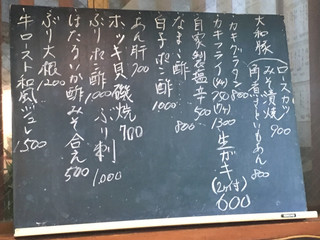 大和豚
ロースカツ
みそ漬焼 900
角煮さといもあん 800
カキグラタン 800
カキフライ(4ケ)750
(2ケ付)
生ガキ 600
自家製塩辛 500
なまこ酢 800
白子ポン酢 1000
あん肝 700
ぶりポン酢 1000
ぶり刺 1,000
ホッキ貝磯焼 700
ほたるいか酢みそ合え 500
ぶり大根 1200
牛ロースト和風ジュレ 1500